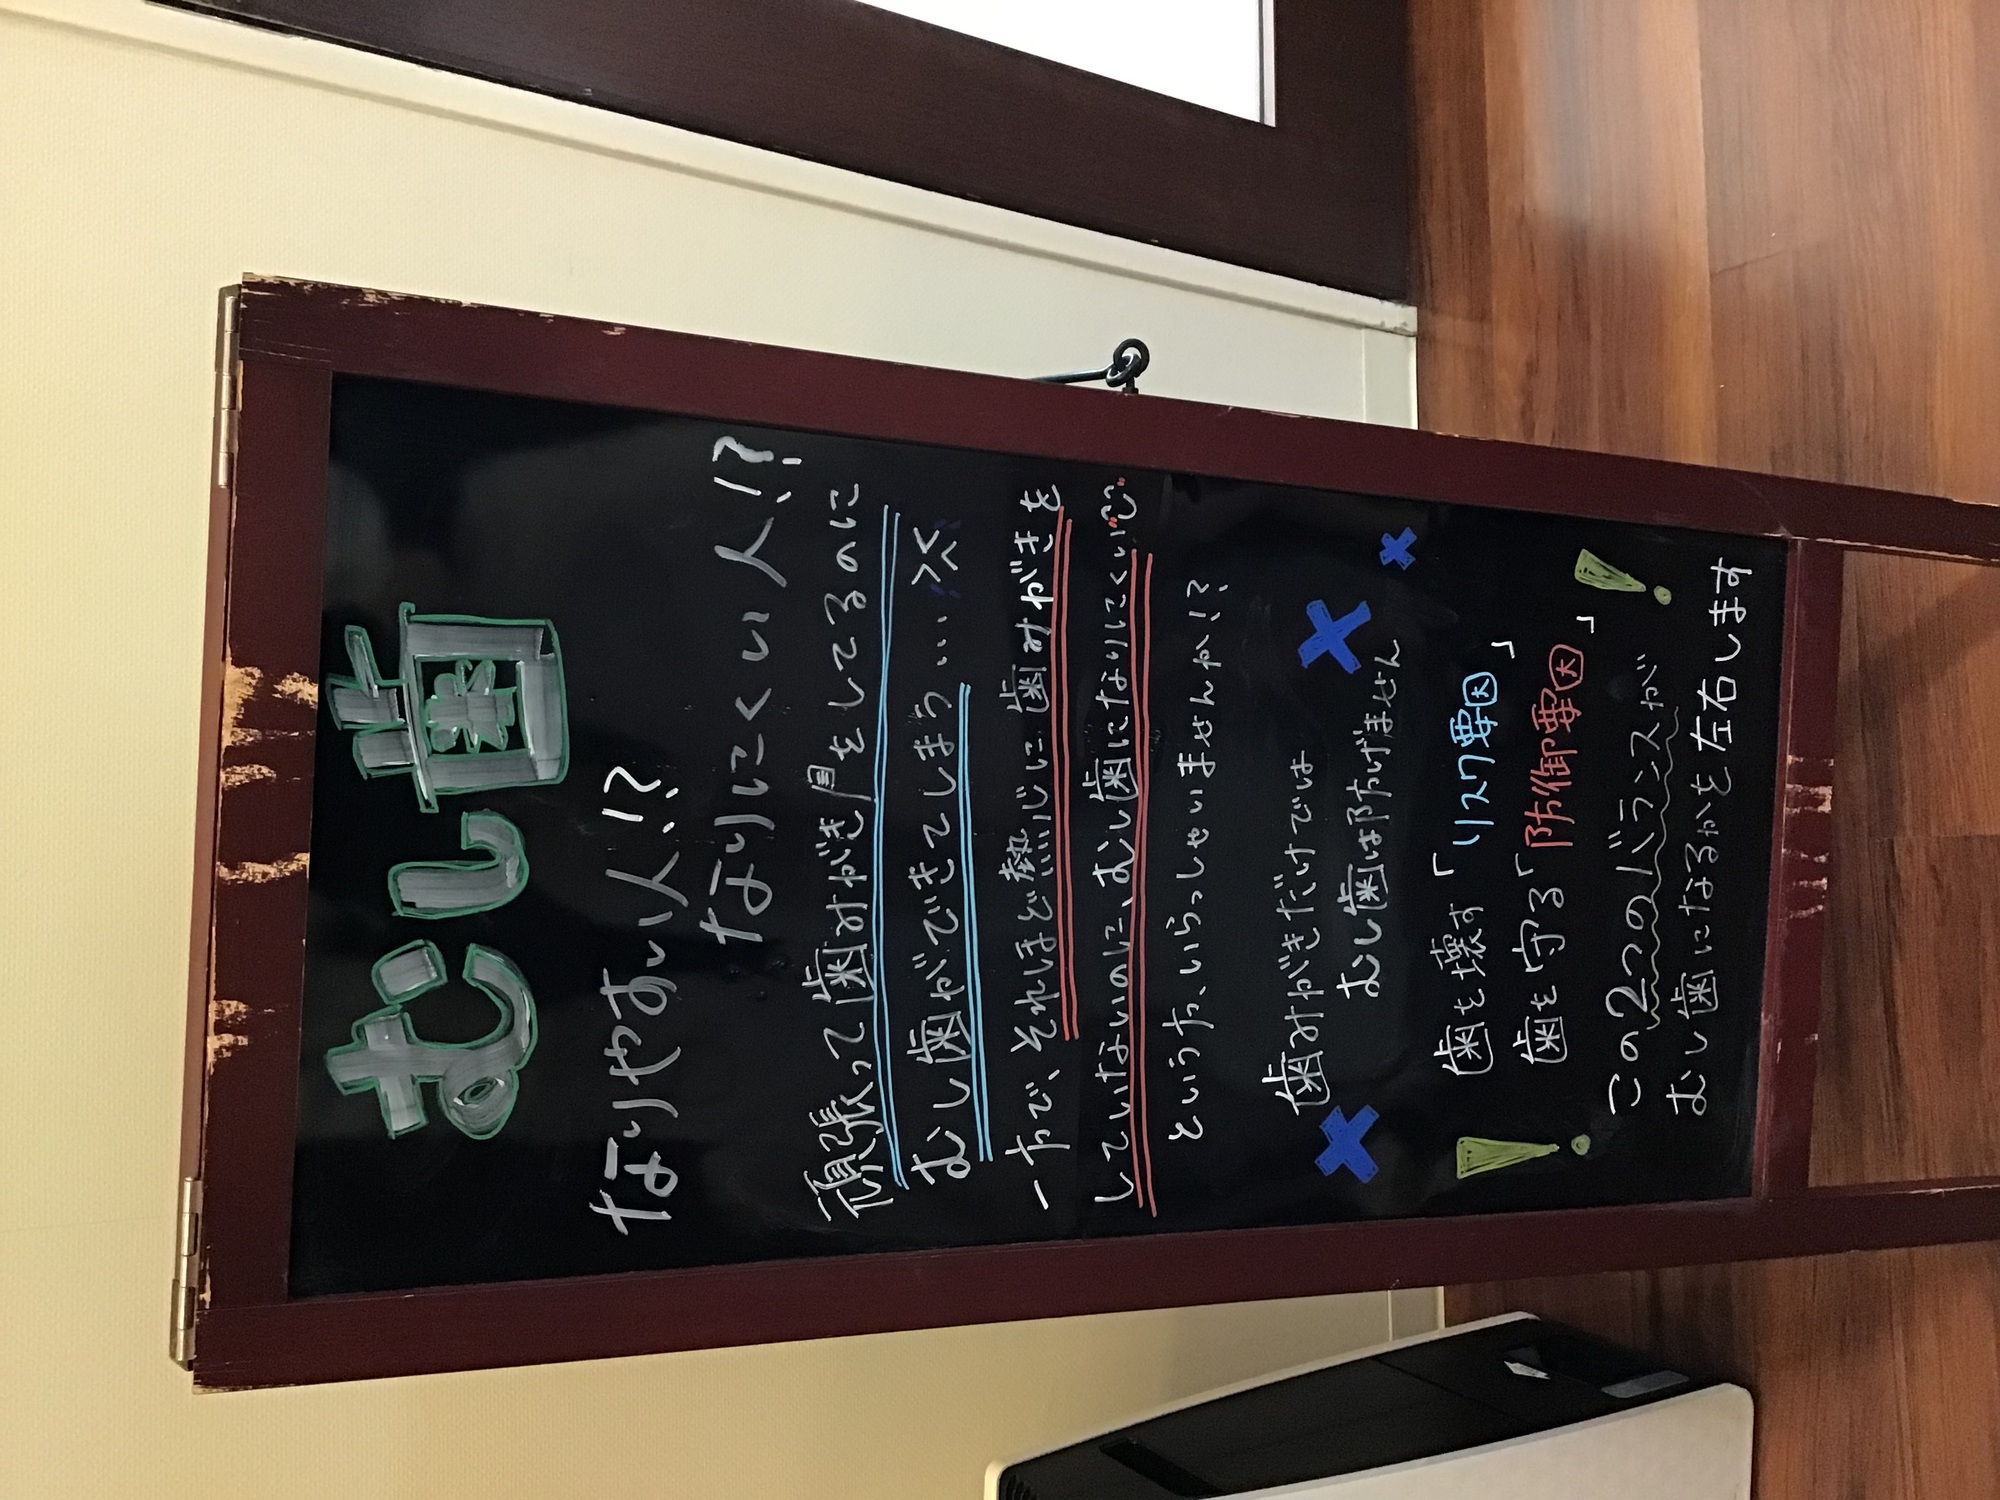 むし歯
なりやすい人!?
なりにくい人!?
頑張って歯みがき習慣をしてるのに
むし歯ができてしまう…
一方で、それほど熱心に歯みがきを
していないのに、むし歯になりにくい
という方、いらっしゃいませんか!?
歯みがきだけでは
むし歯は防げません
歯を壊す「リスク要因」
歯を守る「防御要因」
この2つのバランスが
むし歯になるかを左右します